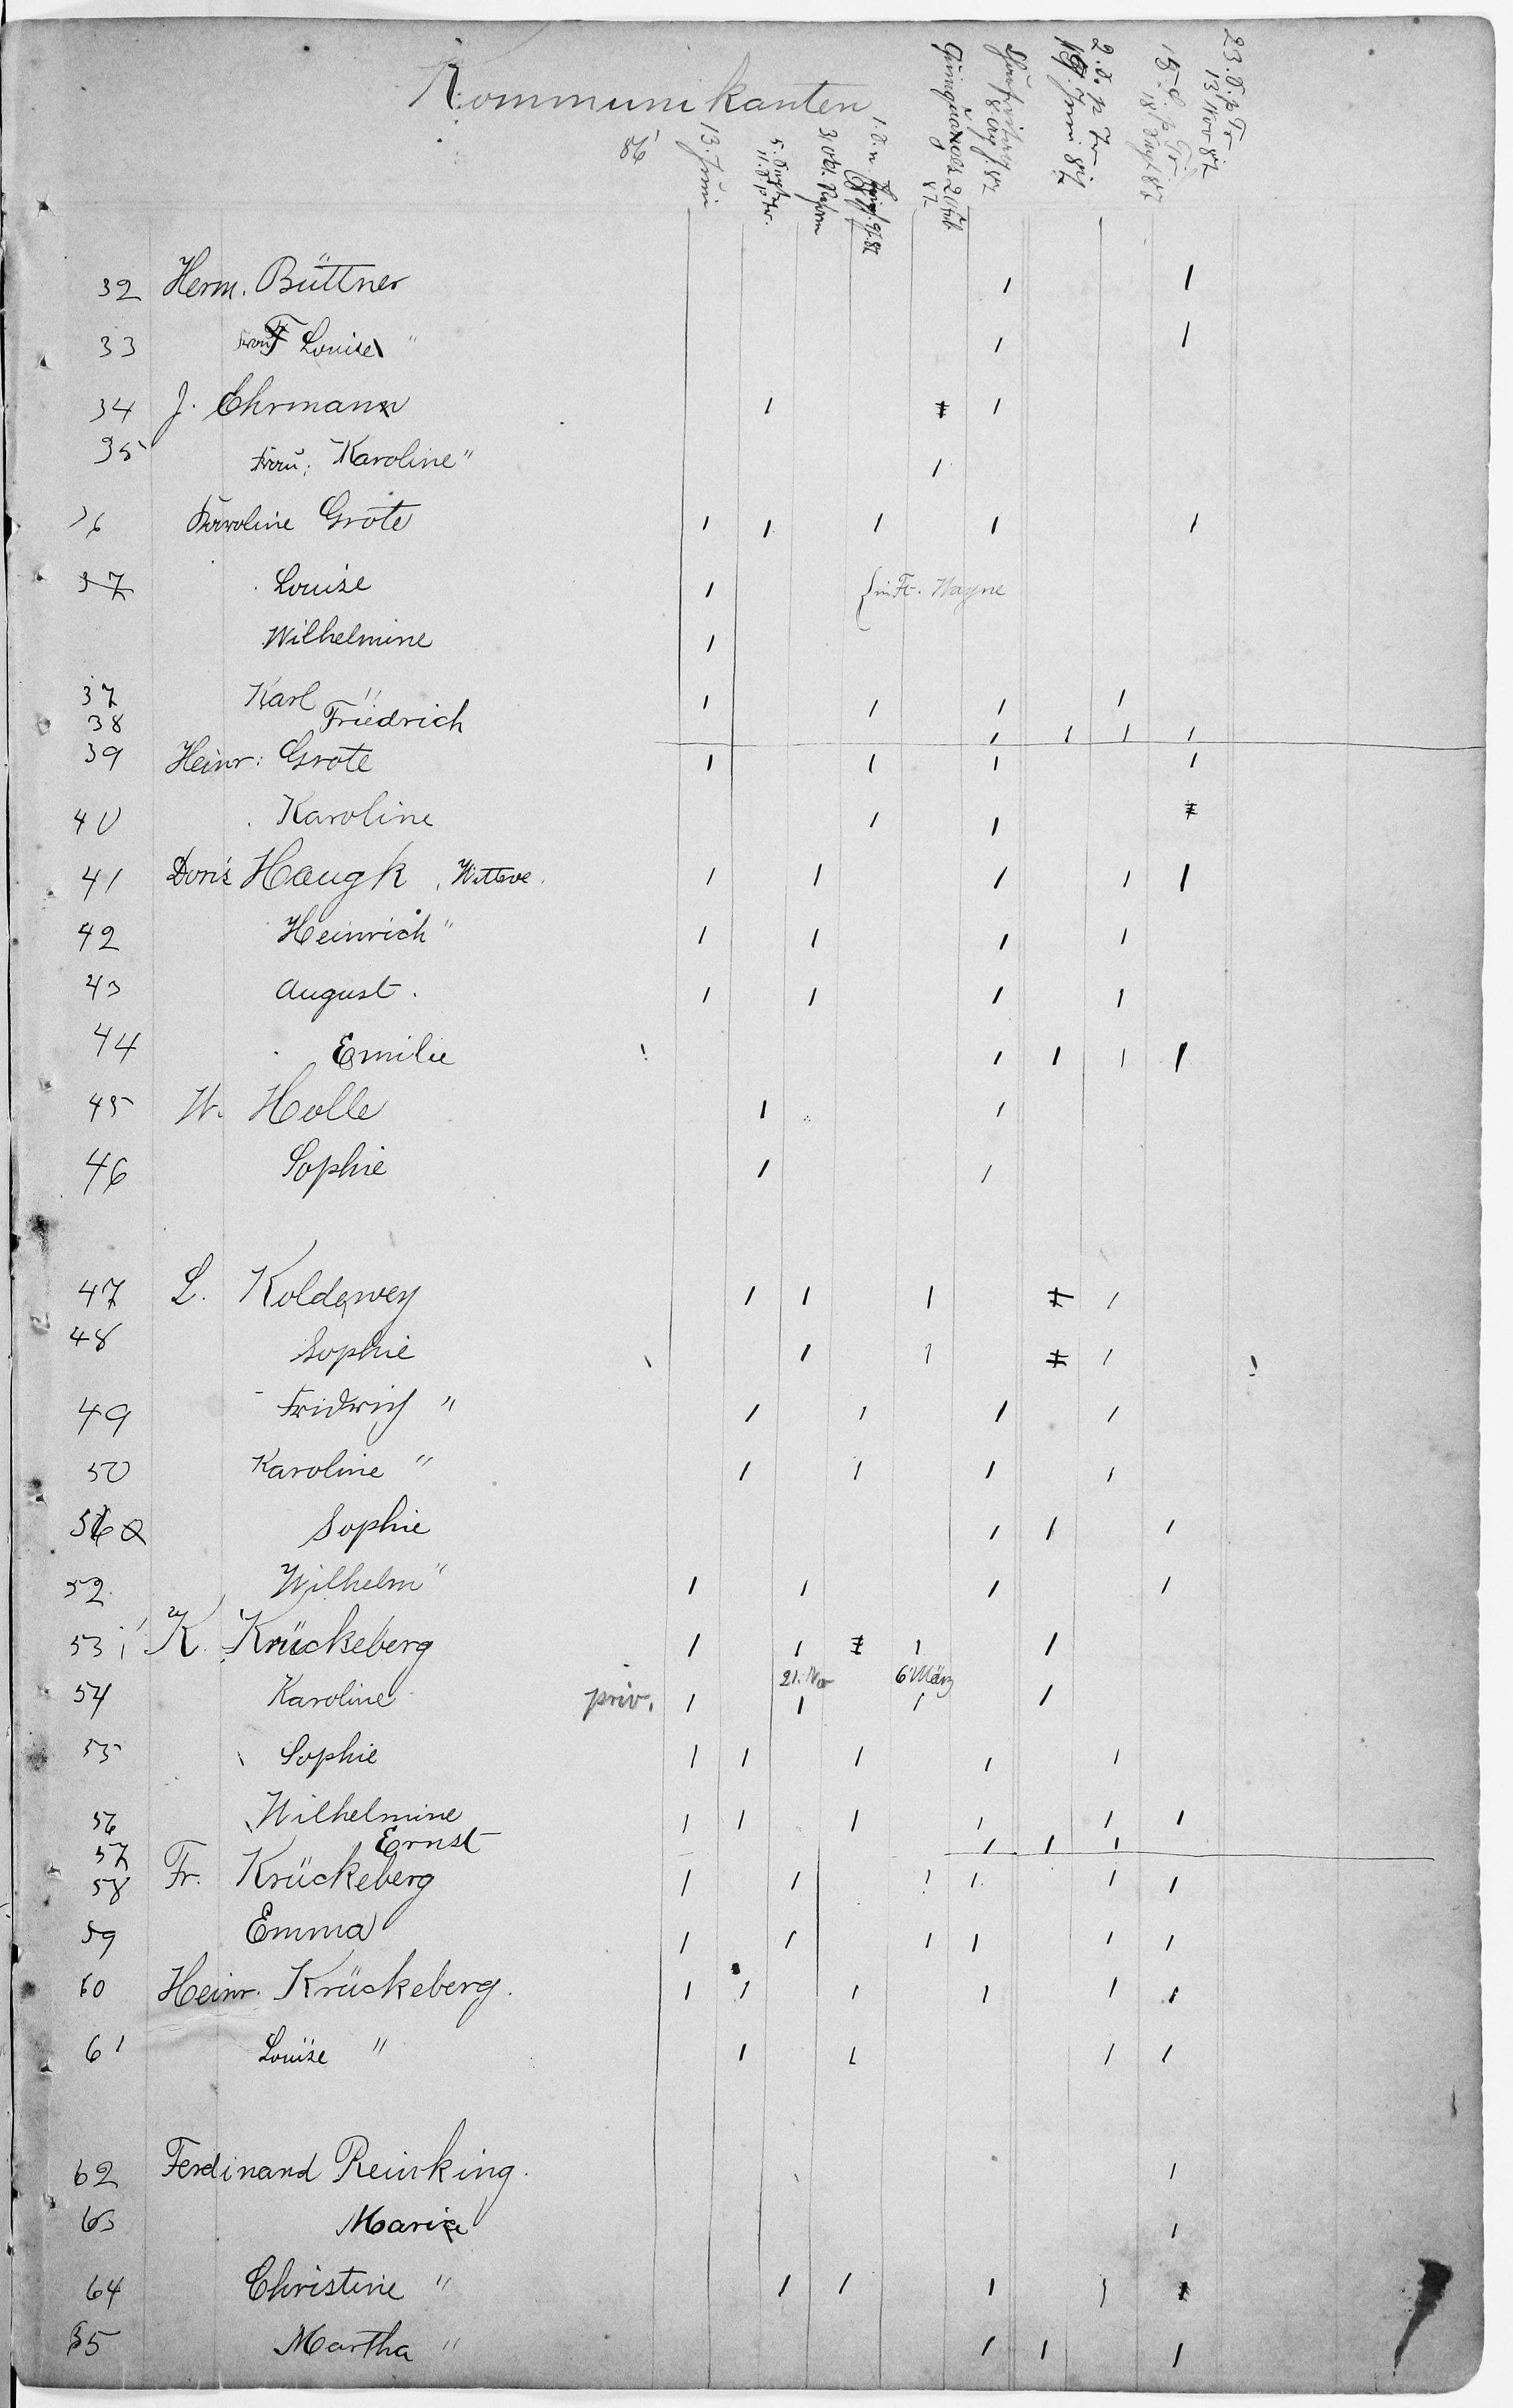 Kommunikanten
86
13. Juni
5. Sept
11. S. p. Tr.
31 Okt. Reform
1. S. n. 9 J 87
20 Feb 87
8 Apr. 87
2. S. p Tr
19. Juni 87
15. S. p. Tr.
18 Sept 87
23. S. p Tr
13 Nov 87
32 Herm. Büttner / /
33 Frau Louise " / /
34 J. Ehrmann / ǂ /
35 Frau: Karoline " /
36 Karoline Grote / / / / /
37 Louise / in Ft. Wayne
Wilhelmine /
37 Karl " / / / /
38 Friedrich / / / /
39 Heinr: Grote / / / /
40 Karoline / / ǂ
41 Doris Haugk, Wittwe. / / / / /
42 Heinrich " / / / /
43 August. / / / /
44 Emilie / / / /
45 W. Holle / /
46 Sophie / /
47 L. Koldewey / / / ǂ /
48 Sophie / / ǂ /
49 Fridrich " / / / /
50 Karoline " / / / /
51 Sophie / / /
52 Wilhelm " / / / /
53 K. Krückeberg / / ǂ / /
21. Nov 6 März
54 Karoline priv. / / / /
55 Sophie / / / / /
56 Wilhelmine / / / / / /
57 Ernst / / /
58 Fr. Krückeberg / / / / / /
59 Emma / / / / / /
60 Heinr. Krückeberg. / / / / / /
61 Louise " / / / /
62 Ferdinand Reinking. /
63 Marie /
64 Christine " / / / / ǂ
65 Martha " / / /